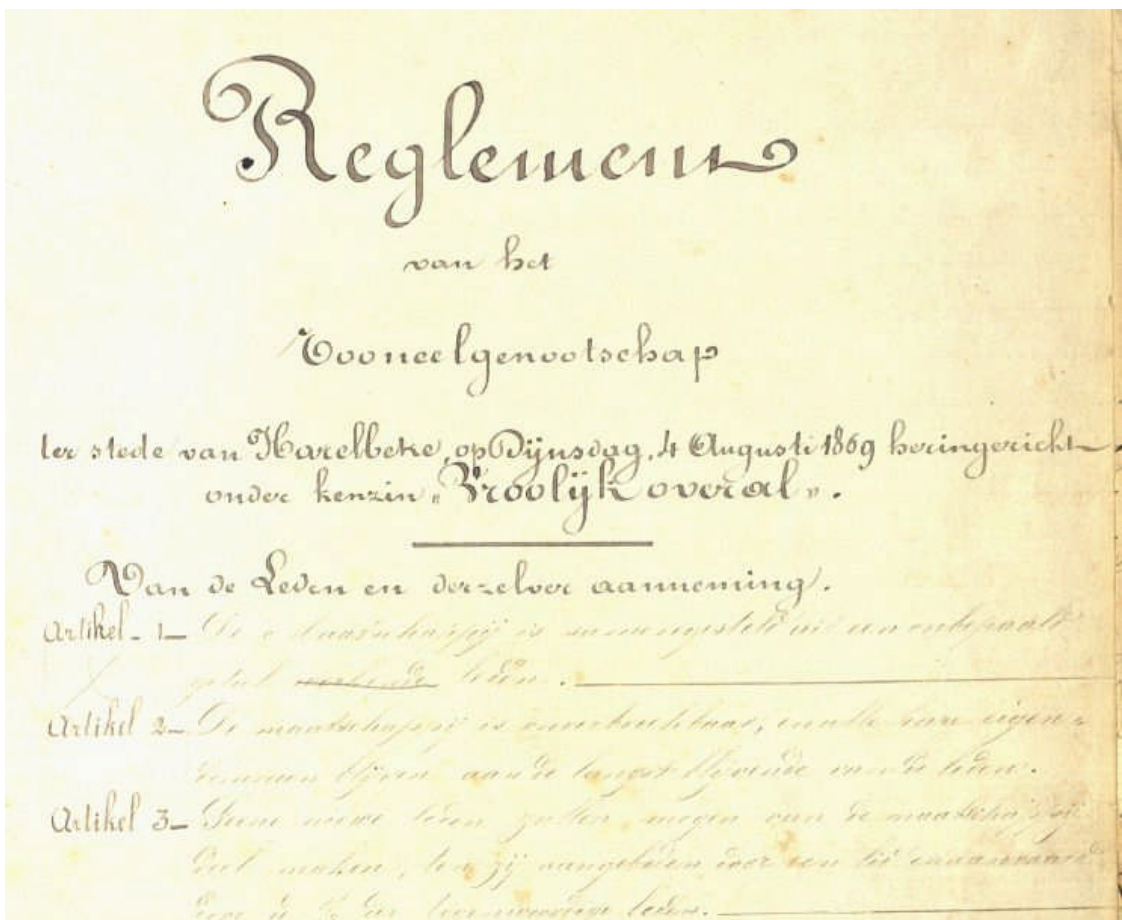 Reglement
van het
Tooneelgenootschap
ter stede van Harelbeke, op Dijnsdag, 4 Augusti 1869 heringericht
onder kenzin „Vroolijk overal”.
Van de Leden en derzelver aanneming.
Artikel - 1 — De Maatschappij is samengesteld uit een onbepaald
getal werkende leden.
Artikel 2 — De maatschappij is onverbreekbaar, en alle hare eigen-
dommen blijven aan de langst blijvende van de leden.
Artikel 3 — Geene nieuwe leden zullen mogen van de maatschappij
deel maken, ten zij aangeboden door een lid en aanvaard
door de der tegenwoordige leden.